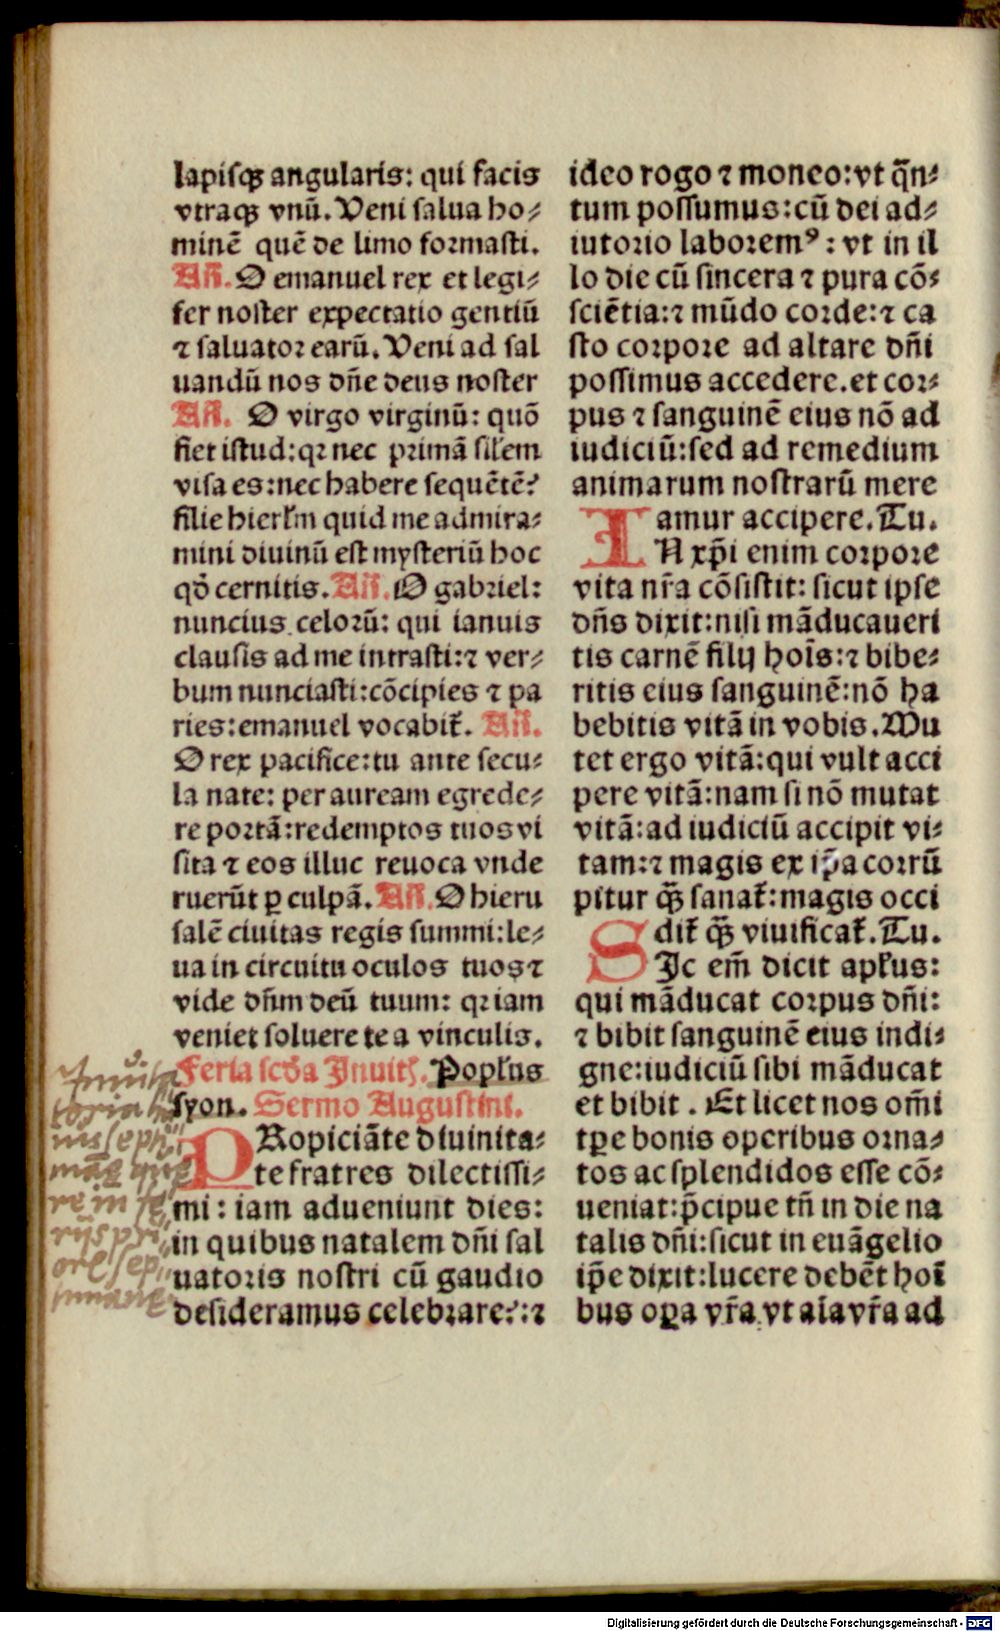 lapisqꝫ angularis: qui facis
vtraqꝫ vnū. Veni salua ho⸗
minē quē de limo formasti.
Añ. O emanuel rex et legi⸗
fer noster expectatio gentiū
⁊ saluator earū. Veni ad sal
uandū nos dn̄e deus noster
Añ. O virgo virginū: quō
fiet istud: qꝛ nec primā silem
visa es: nec habere sequētē?
filie hierl̄m quid me admira⸗
mini diuinū est mysteriū hoc
qd̓ cernitis. Añ. O gabriel:
nuncius celorū: qui ianuis
clausis ad me intrasti: ⁊ ver⸗
bum nunciasti: cōcipies ⁊ pa
ries: emanuel vocabit̄. Añ.
O rex pacifice: tu ante secu⸗
la nate: per auream egrede⸗
re portā: redemptos tuos vi
sita ⁊ eos illuc reuoca vnde
ruerūt ꝑ culpā. Añ. O hieru
salē ciuitas regis summi: le⸗
ua in circuitu oculos tuos ⁊
vide dn̄m deū tuum: qꝛ iam
veniet soluere te a vinculis.
Feria scd̓a Inuit̄. Popl̄us
syon. Sermo Augustini.
PRopiciāte diuinita⸗
te fratres dilectissi⸗
mi: iam adueniunt dies:
in quibus natalem dn̄i sal
uatoris nostri cū gaudio
desideramus celebrare: ⁊
ideo rogo ⁊ moneo: vt q̄n⸗
tum possumus: cū dei ad⸗
iutorio laboremꝰ: vt in il
lo die cū sincera ⁊ pura cō⸗
sciētia: ⁊ mūdo corde: ⁊ ca
sto corpore ad altare dn̄i
possimus accedere. et cor⸗
pus ⁊ sanguinē eius nō ad
iudiciū: sed ad remedium
animarum nostrarū mere
amur accipere. Tu.
IN xp̄i enim corpore
vita nr̄a cōsistit: sicut ipse
dn̄s dixit: nisi māducaueri
tis carnē filij hoīs: ⁊ bibe⸗
ritis eius sanguinē: nō ha
bebitis vitā in vobis. Mu
tet ergo vitā: qui vult acci
pere vitā: nam si nō mutat
vitā: ad iudiciū accipit vi⸗
tam: ⁊ magis ex ip̄a corrū
pitur qꝫ̄ sanat̄: magis occi
dit̄ qꝫ̄ viuificat̄. Tu.
SIc em̄ dicit apl̄us:
qui māducat corpus dn̄i:
⁊ bibit sanguinē eius indi⸗
gne: iudiciū sibi māducat
et bibit. Et licet nos om̄i
tꝑe bonis operibus orna⸗
tos ac splendidos esse cō⸗
ueniat: p̄cipue tn̄ in die na
talis dn̄i: sicut in euāgelio
ip̄e dixit: lucere debēt hoī
bus oꝑa vr̄a. vt aīa vr̄a ad
Digitalisierung gefördert durch die Deutsche Forschungsgemeinschaft - DFG